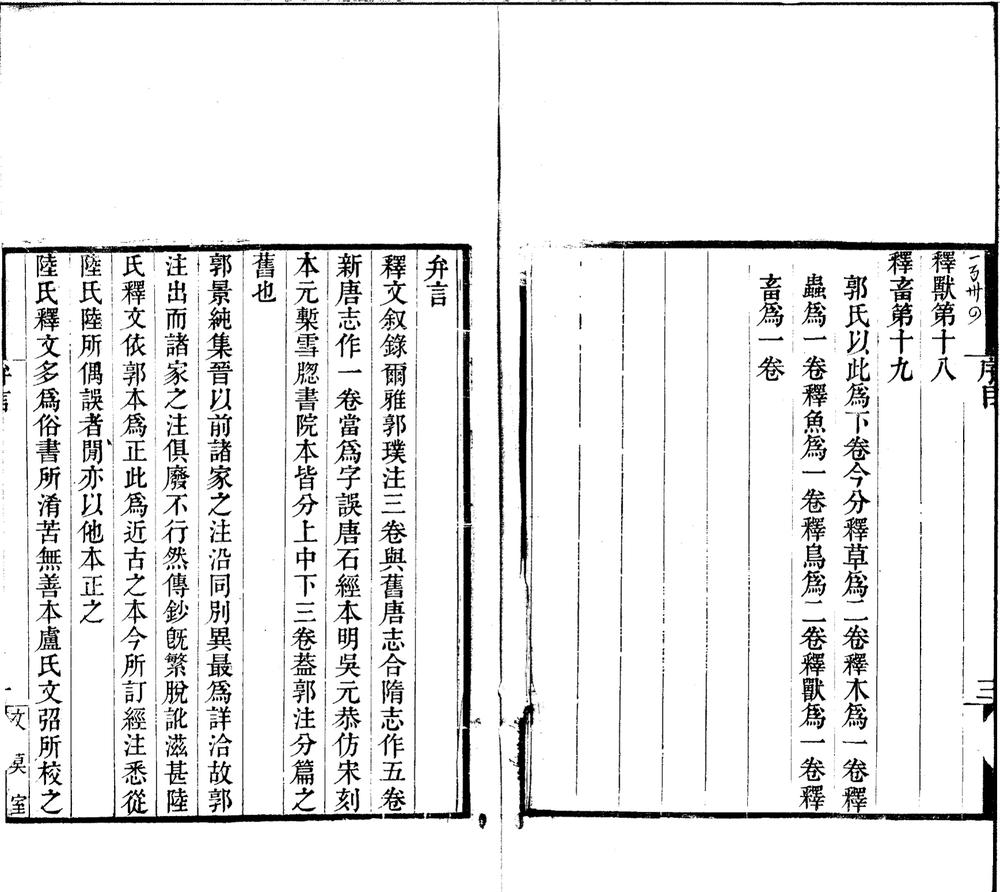 序目
三
釋獸第十八
釋畜第十九
郭氏以此爲下卷今分釋草爲二卷釋木爲一卷釋
蟲爲一卷釋魚爲一卷釋鳥爲二卷釋獸爲一卷釋
畜爲一卷
弁言
釋文叙錄爾雅郭璞注三卷與舊唐志合隋志作五卷
新唐志作一卷當爲字誤唐石經本明吳元恭仿宋刻
本元槧雪牕書院本皆分上中下三卷葢郭注分篇之
舊也
郭景純集晉以前諸家之注沿同別異最爲詳洽故郭
注出而諸家之注俱廢不行然傳鈔旣繁脫訛滋甚陸
氏釋文依郭本爲正此爲近古之本今所訂經注悉從
陸氏陸所偶誤者閒亦以他本正之
陸氏釋文多爲俗書所淆苦無善本盧氏文弨所校之
弁言
一